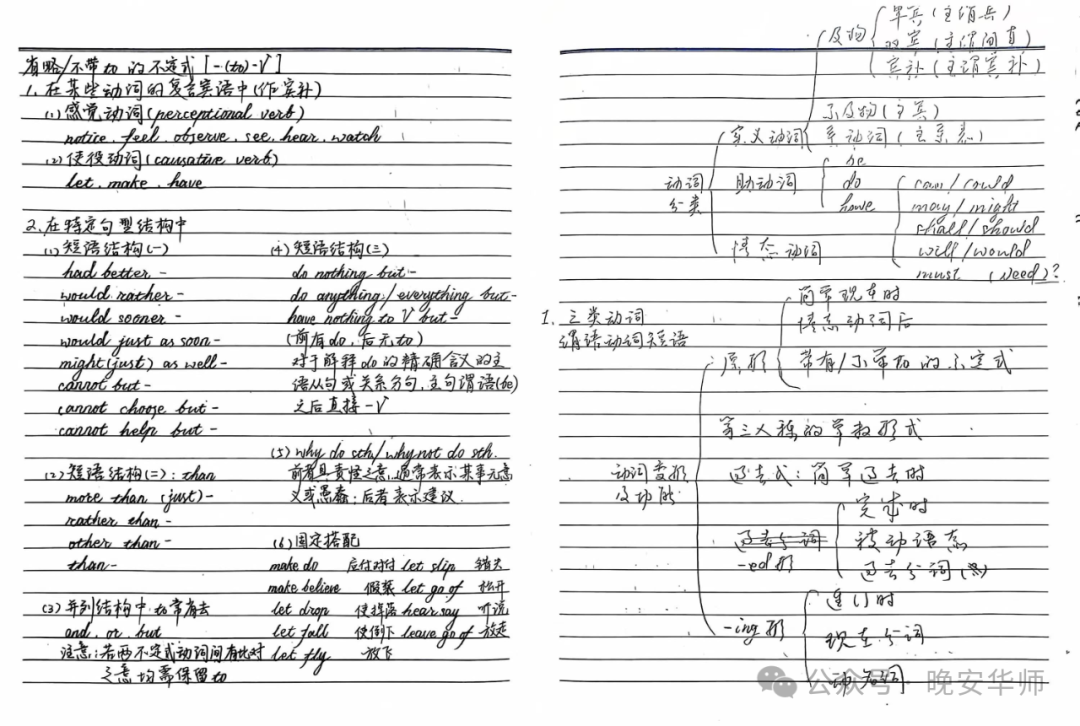 省略/不带to 的不定式 [-(to)-V]
1. 在某些动词的复合宾语中(作宾补)
(1) 感觉动词(perceptional verb)
notice, feel, observe, see, hear, watch
(2) 使役动词(causative verb)
let, make, have
2. 在特定句型结构中
(1) 短语结构(一)
had better -
would rather -
would sooner -
would just as soon -
might (just) as well -
cannot but -
cannot choose but -
cannot help but -
(2) 短语结构(二): than
more than (just) -
rather than -
other than -
than -
(3) 并列结构中 to 常省去
and, or, but
注意: 若两不定式动词间有比对
之意均需保留to
(4) 短语结构(三)
do nothing but -
do anything/everything but -
have nothing to V but -
(前有do, 后无to)
对于解释do的精确含义的主
语从句或关系分句, 主句谓语(be)
之后直接 -V
(5) why do sth/why not do sth.
前者具责怪之意, 通常表示某事无意
义或愚蠢; 后者表示建议.
(6) 固定搭配
make do 应付对付 let slip 错失
make believe 假装 let go of 松开
let drop 使掉落 hear say 听说
let fall 使倒下 leave go of 放走
let fly 放飞
动词分类
实义动词
及物
单宾(主谓宾)
双宾(主谓间直)
宾补(主谓宾补)
不及物(主宾)
系动词(主系表)
助动词
be
do
have
情态动词
can/could
may/might
shall/should
will/would
must (need)?
1. 三类动词
谓语动词短语
动词变形
及功能
原形
简单现在时
情态动词后
带有/不带to的不定式
第三人称的单数形式
过去式: 简单过去时
过去分词
-ed形
完成时
被动语态
过去分词
-ing形
进行时
现在分词
动名词
公众号·晚安华师